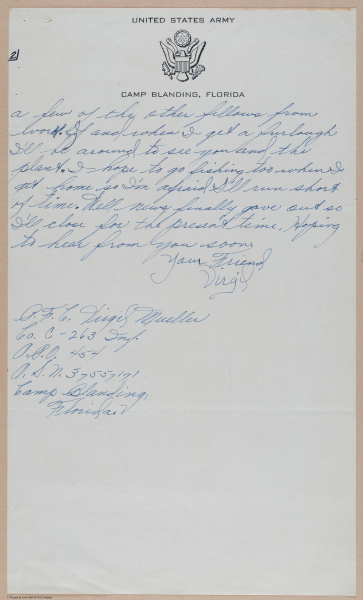 UNITED STATES ARMY
2)
CAMP BLANDING, FLORIDA
a few of the other fellows from
work. If and when I get a furlough
I'll be around to see you and the
plant. I hope to go fishing too when I
get home so I'm afraid I'll run short
of time. Well news finally gave out so
I'll close for the present time. Hoping
to hear from you soon.
Your Friend
Virgil
P.F.C. Virgil Mueller
Co. C-263 Inf.
A.P.O. 454
A.S.N. 37557171
Camp Blanding,
Florida